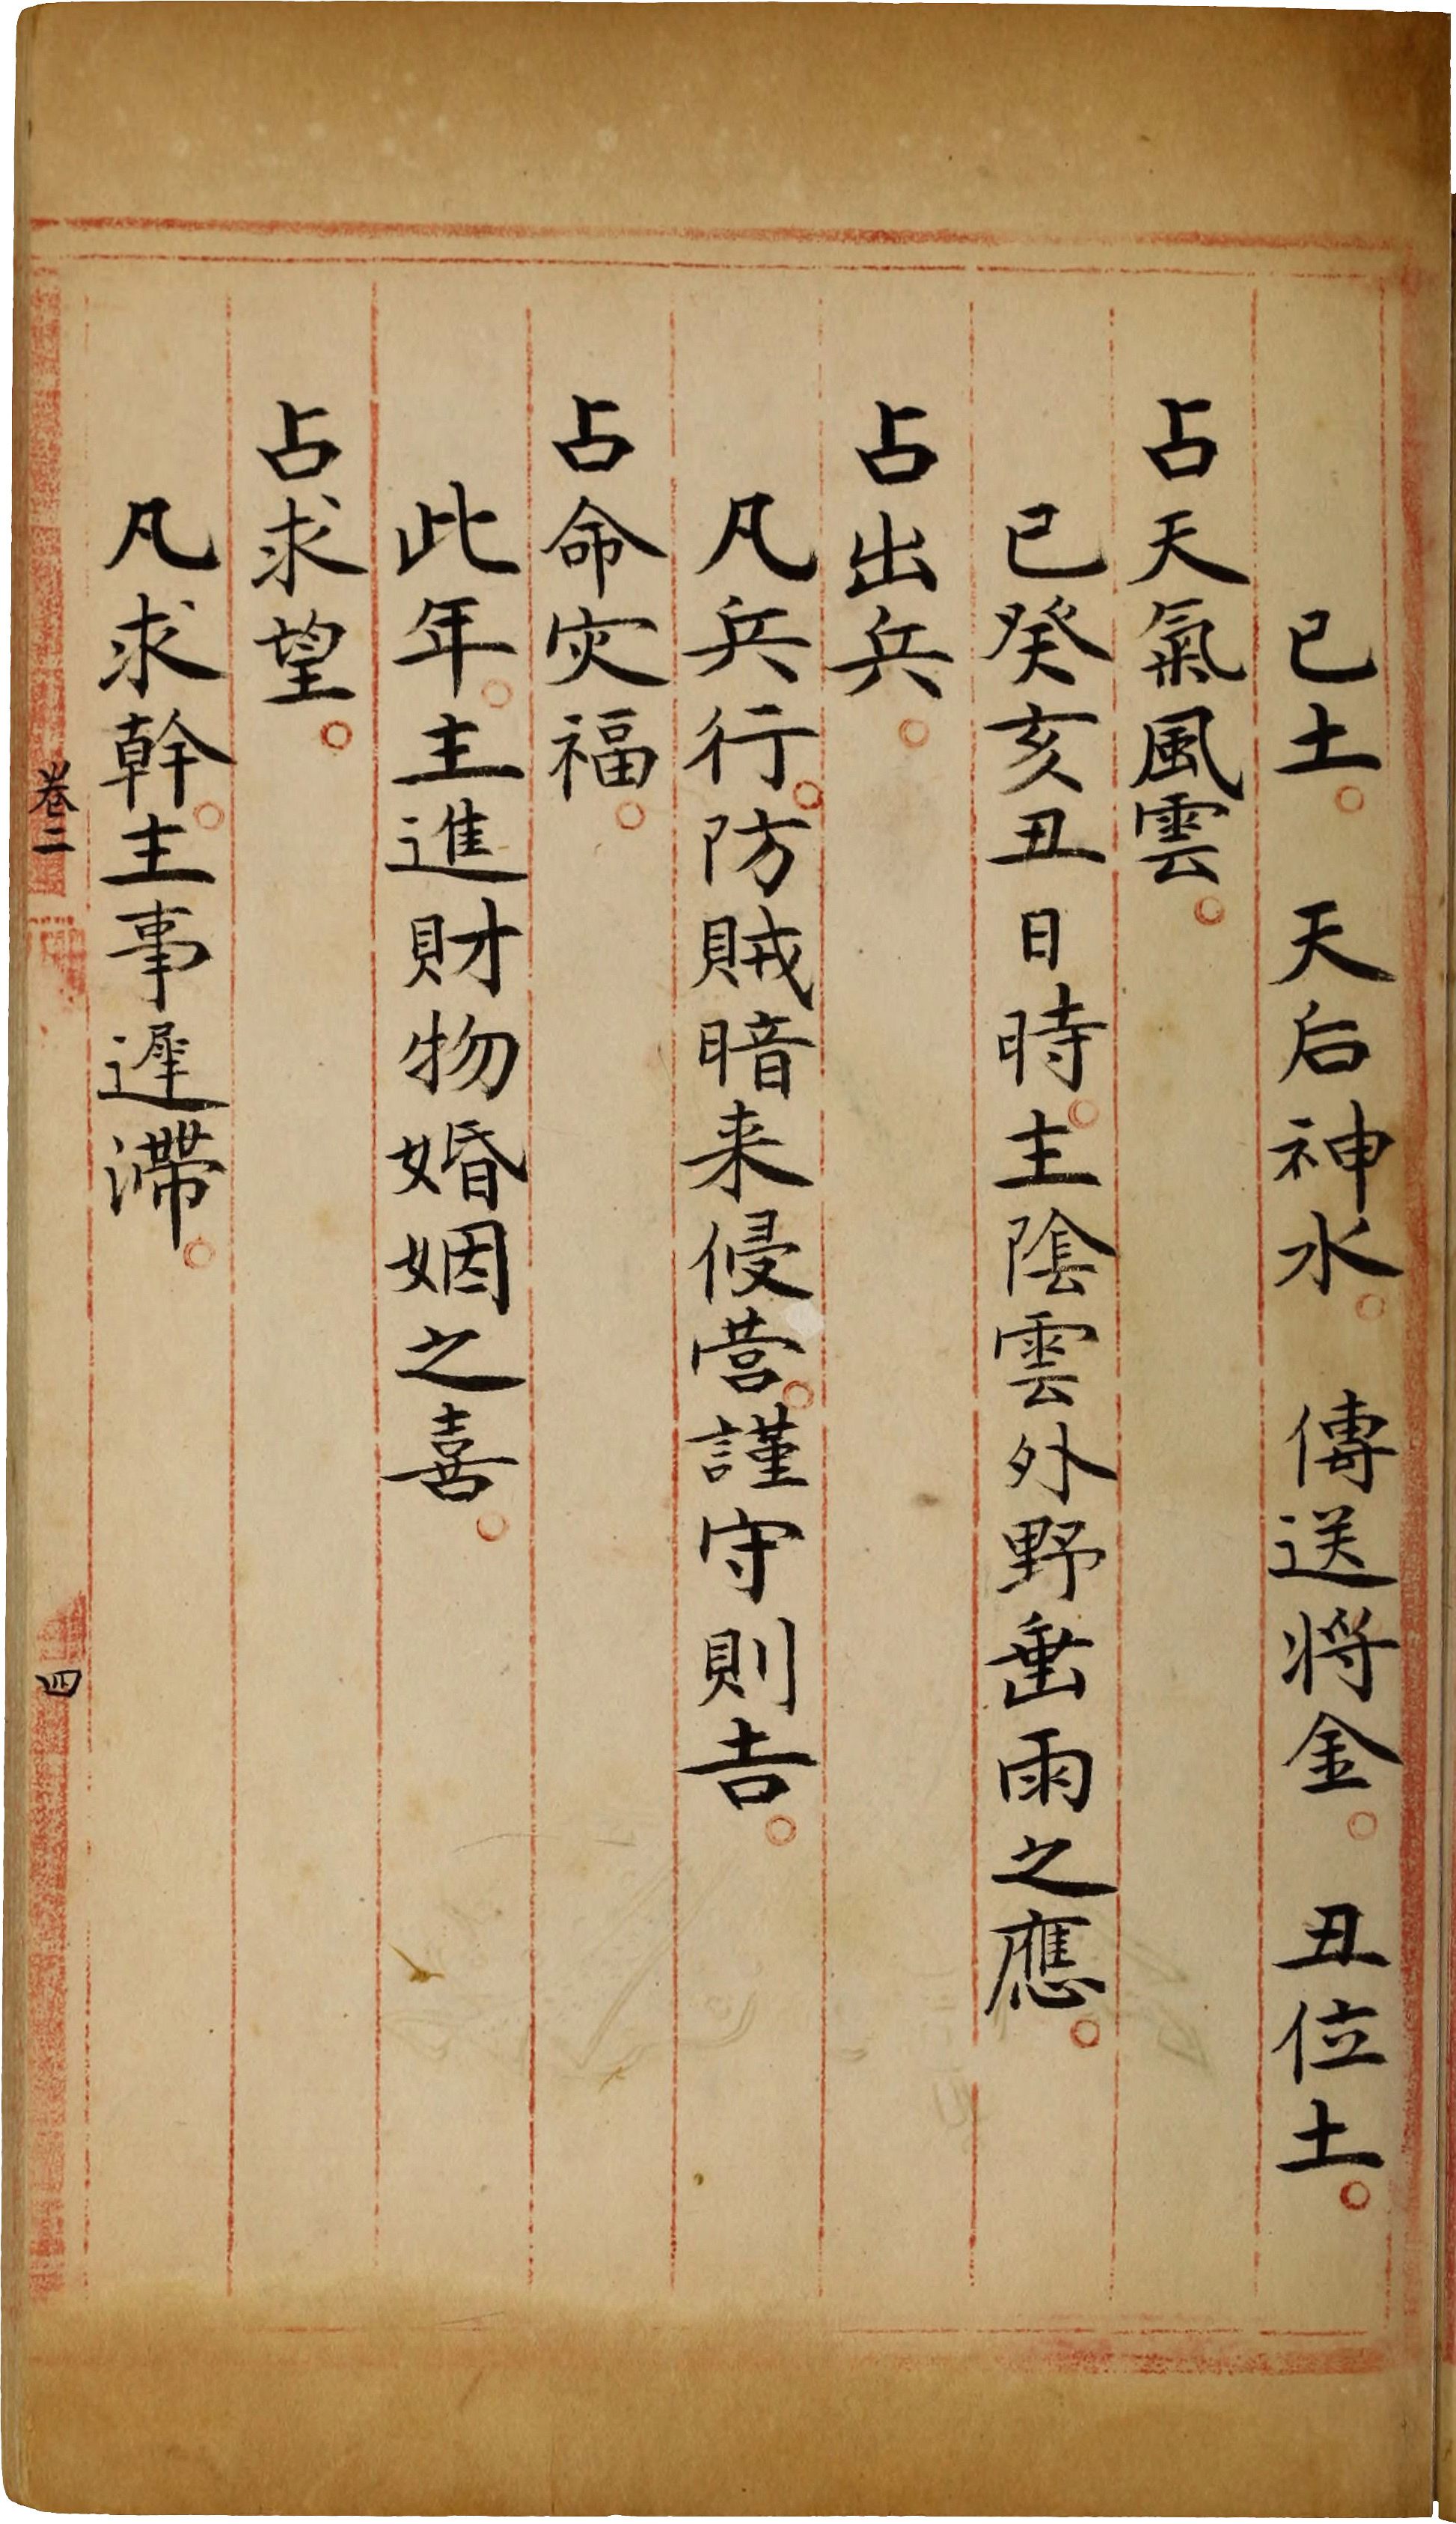 己土。　天后神水。　傳送將金。　丑位土。
占天氣風雲。
己癸亥丑日時。主陰雲外野垂雨之應。
占出兵。
凡兵行。防賊暗来侵营。謹守則吉。
占命灾福。
此年。主進財物婚姻之喜。
占求望。
凡求幹。主事遲滯。
卷二
四